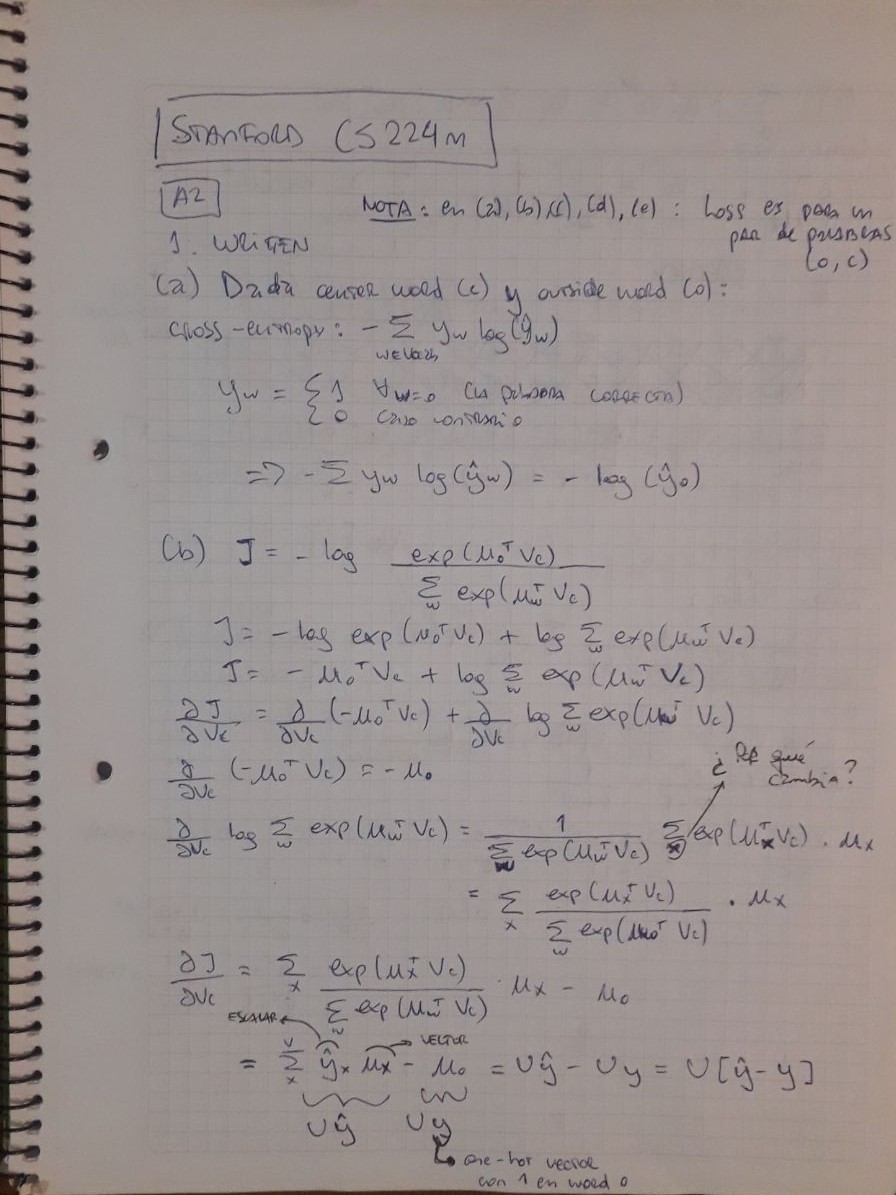 STANFORD CS224n
A2
NOTA: en (a), (b), (c), (d), (e) : Loss es para un
par de palabras
(o, c)
1. WRITTEN
(a) Dada center word (c) y outside word (o):
cross-entropy: - Σ_{w∈Vocab} y_w log(ŷ_w)
y_w = { 1 ∀w=o (la palabra correcta)
{ 0 caso contrario
=> - Σ y_w log(ŷ_w) = - log(ŷ_o)
(b) J = - log exp(μ_o^T V_c) / Σ_w exp(μ_w^T V_c)
J = - log exp(μ_o^T V_c) + log Σ_w exp(μ_w^T V_c)
J = - μ_o^T V_c + log Σ_w exp(μ_w^T V_c)
∂J/∂V_c = ∂/∂V_c (-μ_o^T V_c) + ∂/∂V_c log Σ_w exp(μ_w^T V_c)
∂/∂V_c (-μ_o^T V_c) = - μ_o
¿ Por qué
cambia?
∂/∂V_c log Σ_w exp(μ_w^T V_c) = 1 / Σ_w exp(μ_w^T V_c) Σ_x exp(μ_x^T V_c) . μ_x
= Σ_x exp(μ_x^T V_c) / Σ_w exp(μ_w^T V_c) . μ_x
∂J/∂V_c = Σ_x exp(μ_x^T V_c) / Σ_w exp(μ_w^T V_c) . μ_x - μ_o
ESCALAR VECTOR
= Σ_x^V ŷ_x μ_x - μ_o = Uŷ - Uy = U[ŷ-y]
Uŷ Uy
one-hot vector
con 1 en word o